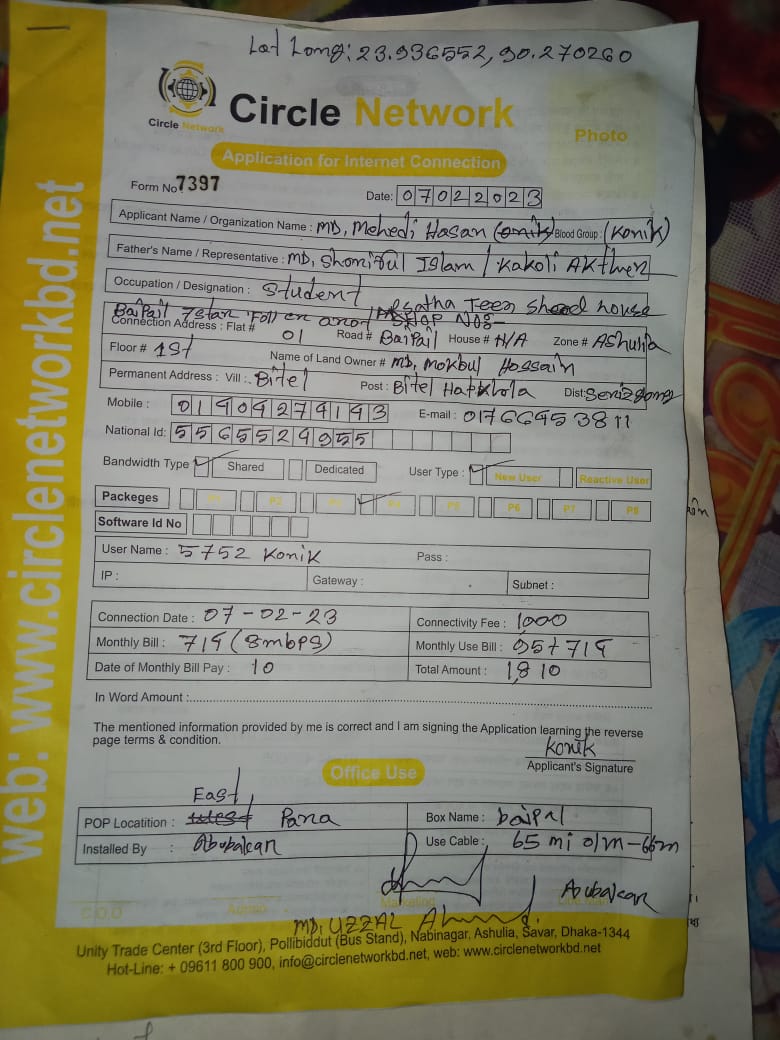 Lat Long: 23.936552, 90.270260
Circle Network
Circle Network
Photo
Application for Internet Connection
Form No 7397
Date: 07022023
Applicant Name / Organization Name : MD, Mehedi Hasan (onik) Blood Group : (Konik)
Father's Name / Representative : MD, Shoniful Islam / Kakoli AKther
Occupation / Designation : Student
Baipail 7star
house
Connection Address : Flat # 01 Road # Baipail House # N/A Zone # Ashulia
Floor # 1st Name of Land Owner # MD, Mokbul Hossain
Permanent Address : Vill : Bitel Post : Bitel Dist:
Mobile : 01909274193 E-mail : 01766953811
National Id: 5565524955
Bandwidth Type Shared Dedicated User Type : New User Reactive User
Packeges P1 P2 P3 P4 P5 P6 P7 P8
Software Id No
User Name : 5752 Konik Pass :
IP : Gateway : Subnet :
Connection Date : 07-02-23 Connectivity Fee : 1000
Monthly Bill : 715 (8mbps) Monthly Use Bill : 95+715
Date of Monthly Bill Pay : 10 Total Amount : 1,810
In Word Amount :
The mentioned information provided by me is correct and I am signing the Application learning the reverse
page terms & condition.
Konik
Applicant's Signature
Office Use
East
POP Locatition : West Para Box Name : baipal
Installed By : Abubakar Use Cable : 65 mi 0/m-66m
Abubakar
C.O.O Admin Marketing
MD: UZZAL Ahmed.
Unity Trade Center (3rd Floor), Pollibiddut (Bus Stand), Nabinagar, Ashulia, Savar, Dhaka-1344
Hot-Line: + 09611 800 900, info@circlenetworkbd.net, web: www.circlenetworkbd.net
web: www.circlenetworkbd.net